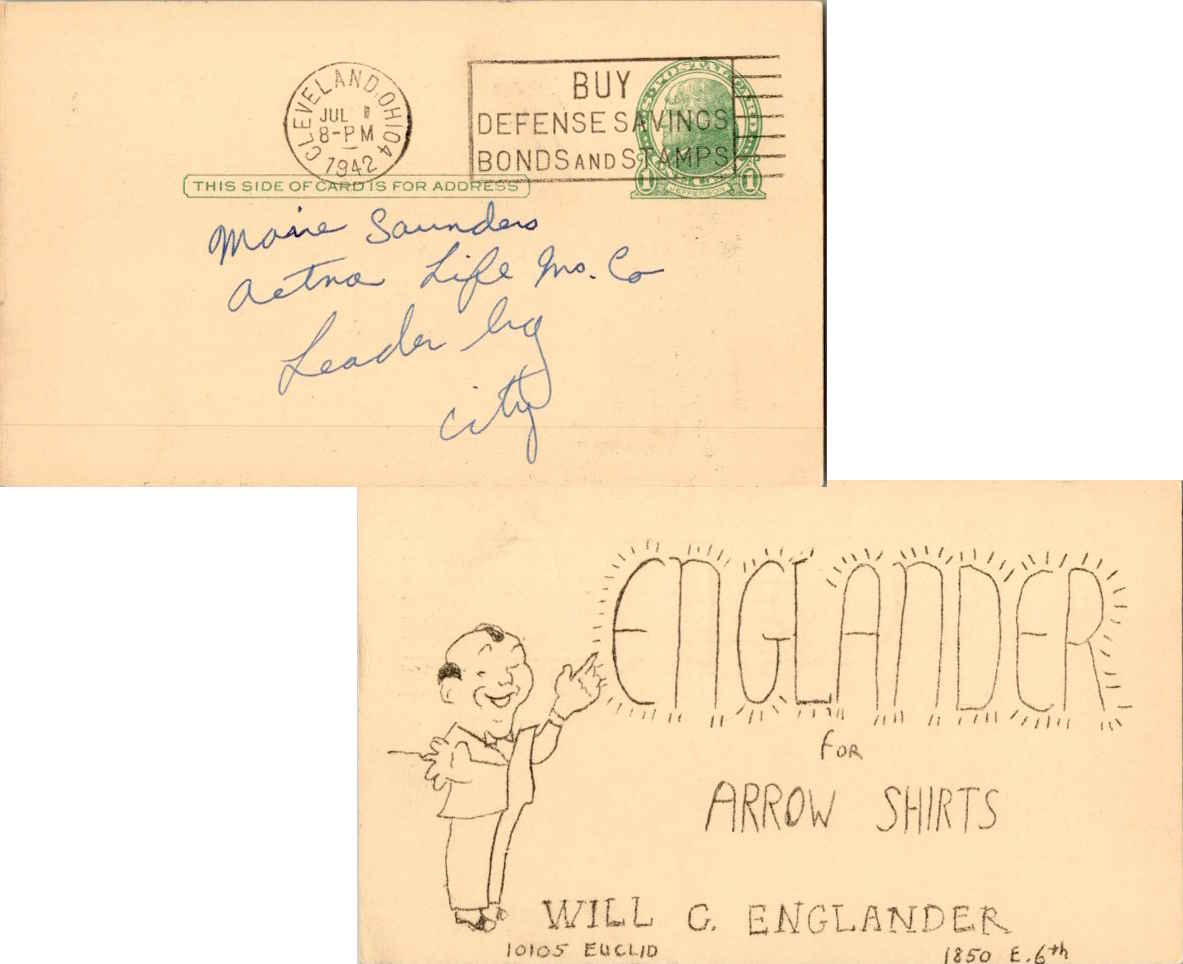 CLEVELAND, OHIO 4
JUL 1
8-PM
1942
BUY
DEFENSE SAVINGS
BONDS AND STAMPS
U.S. POSTAL CARD
1 JEFFERSON 1
THIS SIDE OF CARD IS FOR ADDRESS
Marie Saunders
Aetna Life Ins. Co
Leader
City
ENGLANDER
FOR
ARROW SHIRTS
WILL C. ENGLANDER
10105 EUCLID 1850 E. 6th